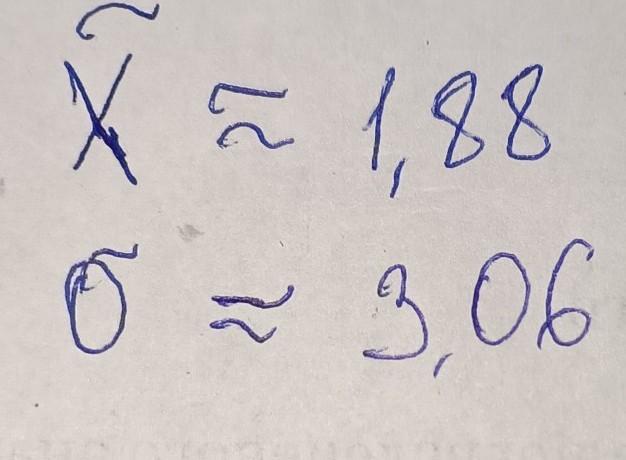 x̃ ≈ 1,88
σ ≈ 3,06